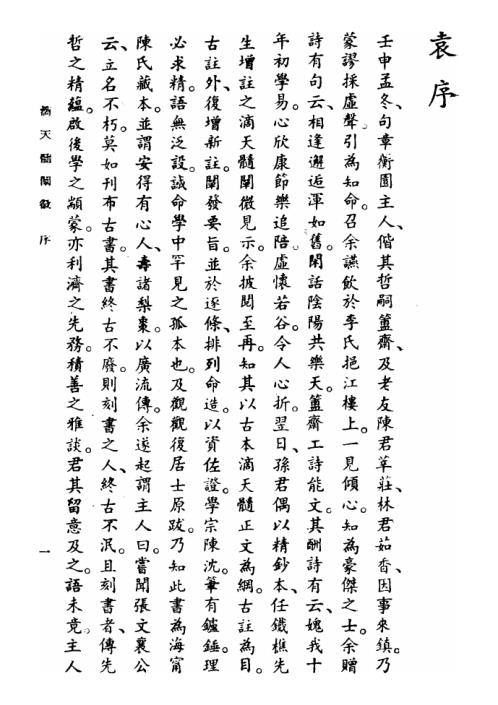 袁序
壬申孟冬、句章衡園主人、偕其哲嗣簠齋、及老友陳君莘莊、林君茹香、因事來鎮。乃
蒙謬採虛聲、引為知命。召余讌飲於李氏挹江樓上。一見傾心。知為豪傑之士。余贈
詩有句云、相逢邂逅渾如舊。閑話陰陽共樂天。簠齋工詩能文。其酬詩有云、媿我十
年初學易。心欣康節樂追陪。虛懷若谷。令人心折。翌日、孫君偶以精鈔本、任鐵樵先
生增註之滴天髓闡微見示。余披閱至再。知其以古本滴天髓正文為綱。古註為目。
古註外、復增新註。闡發要旨。並於逐條、排列命造。以資佐證。學宗陳沈。筆有鑪錘。理
必求精。語無泛設。誠命學中罕見之孤本也。及觀觀復居士原跋。乃知此書為海甯
陳氏藏本。並謂安得有心人、壽諸梨棗。以廣流傳。余遂起謂主人曰。嘗聞張文襄公
云、立名不朽。莫如刊布古書。其書終古不廢。則刻書之人、終古不泯。且刻書者、傳先
哲之精蘊。啟後學之顓蒙。亦利濟之先務。積善之雅談。君其留意及之。語未竟。主人
滴天髓闡微 序
一